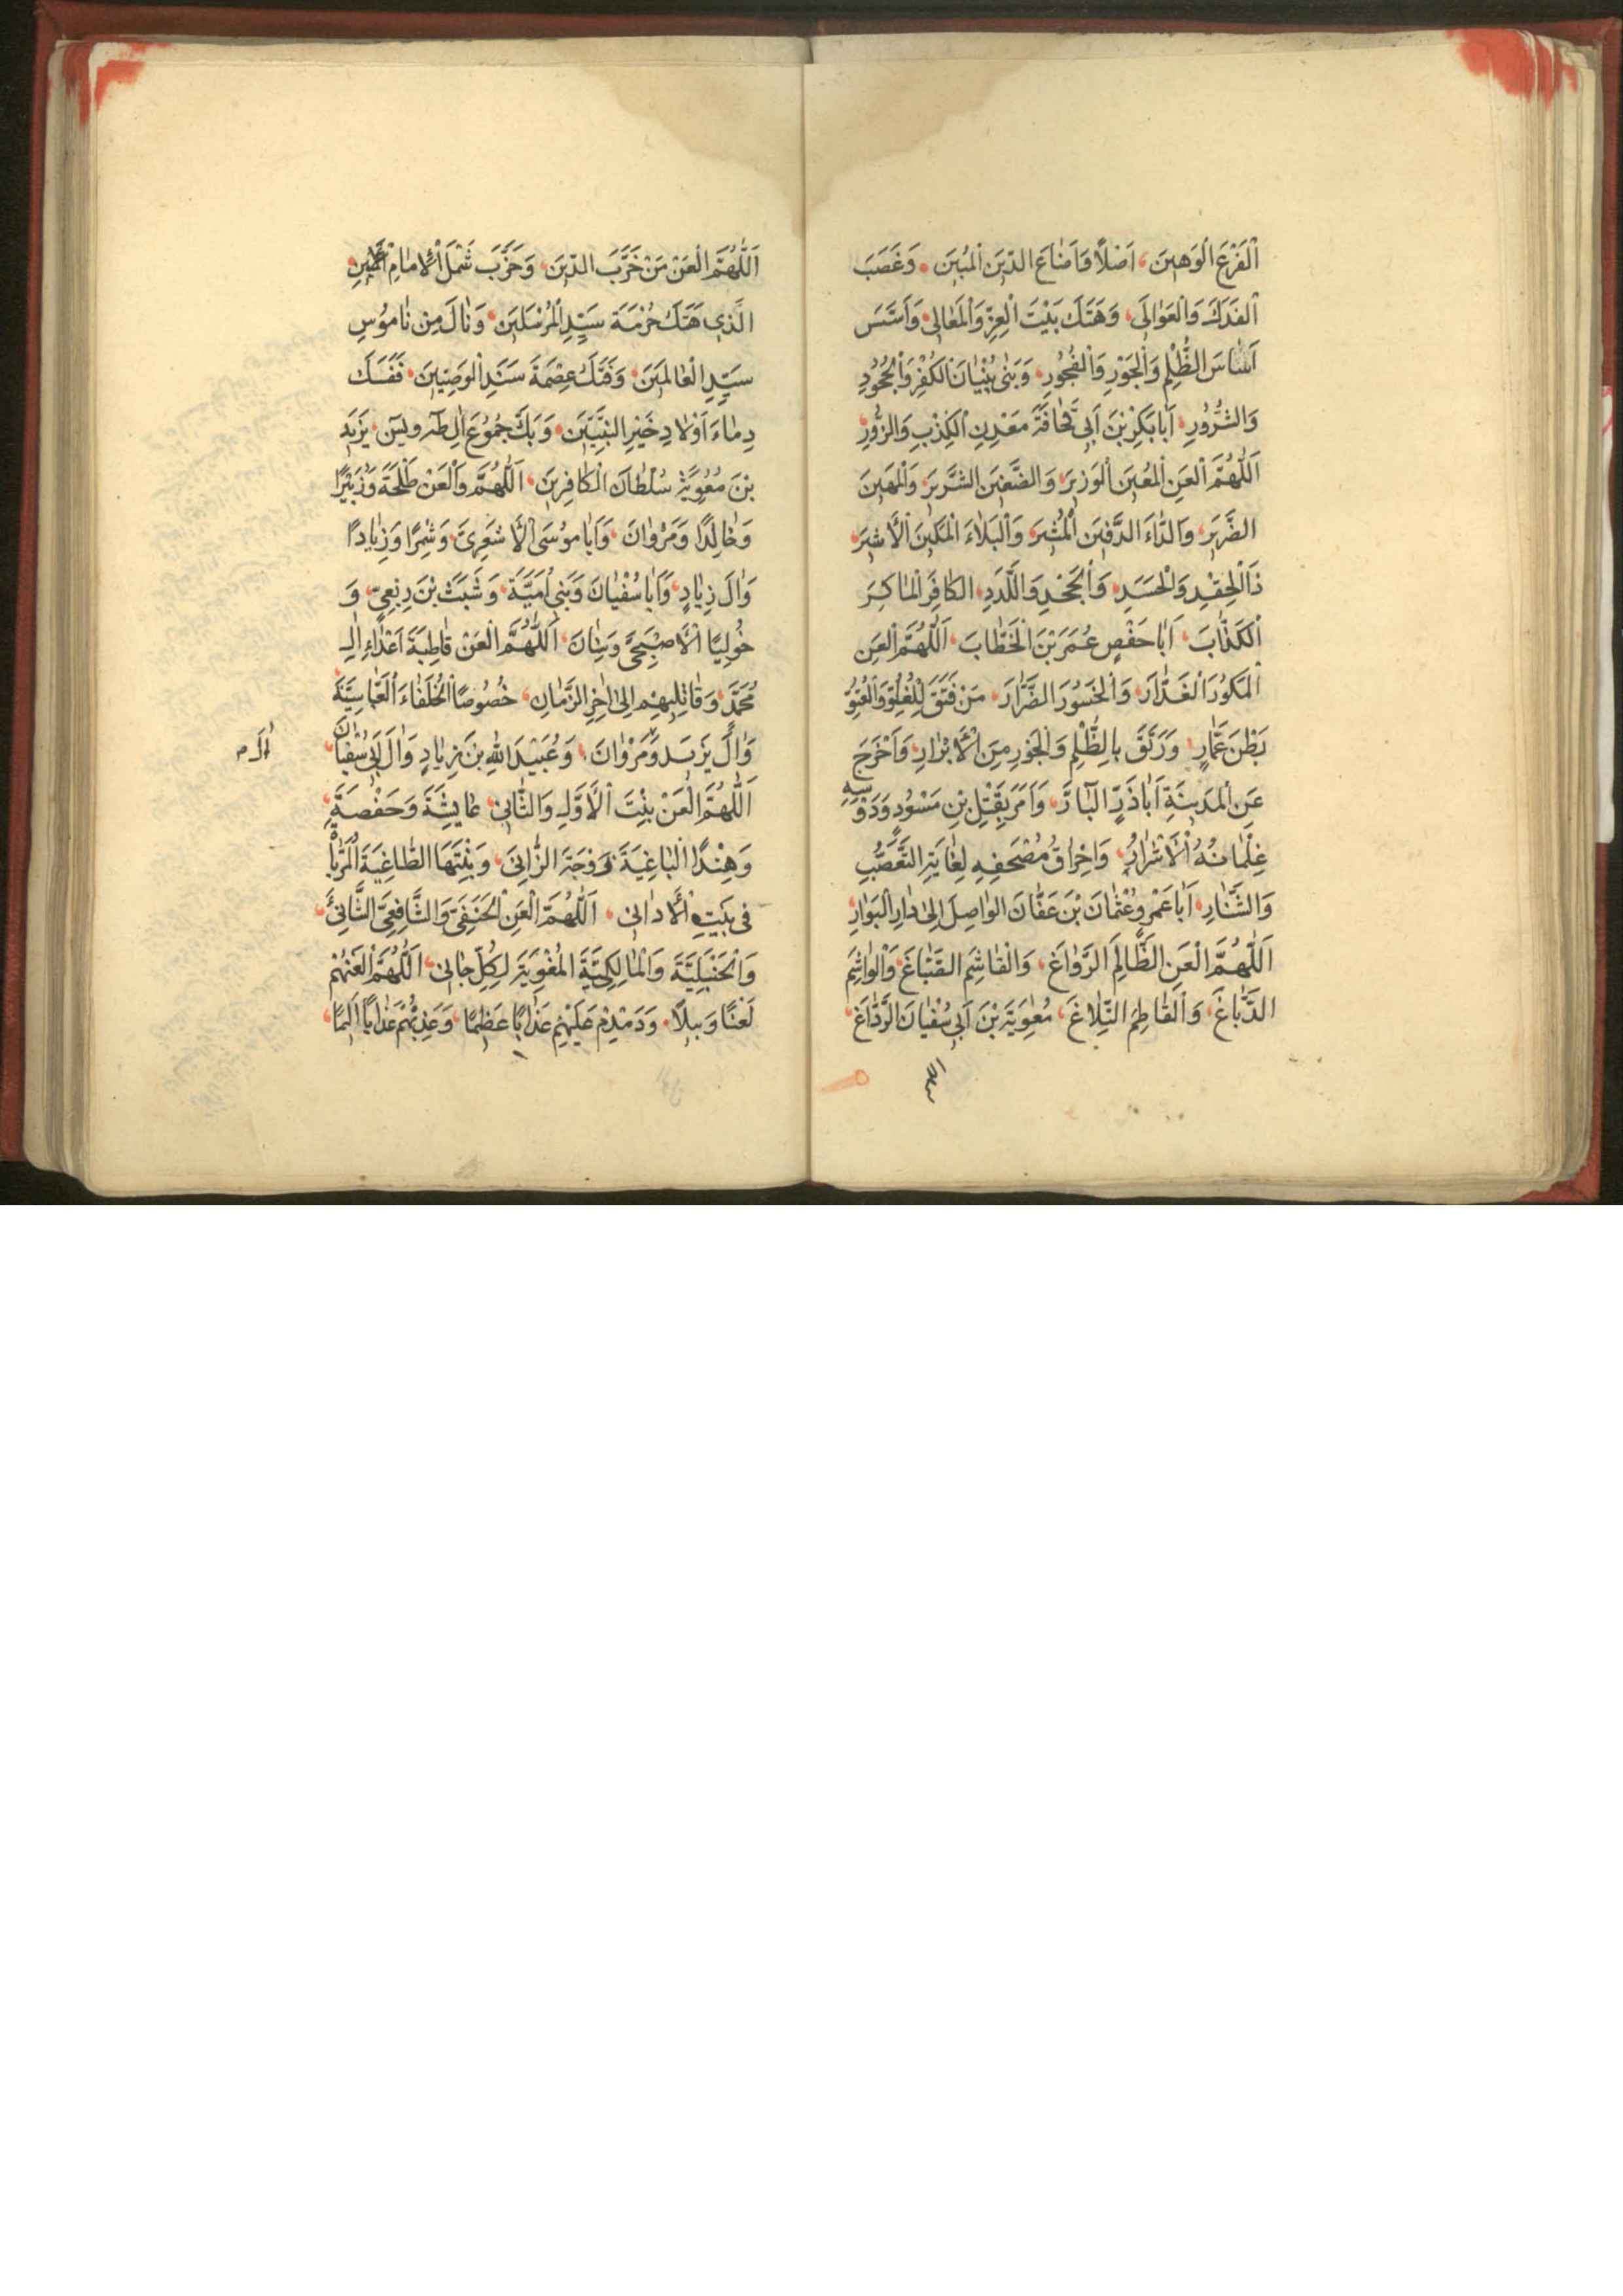 اَلْفَرْعَ الْوَهِينَ، اَصْلًا وَاَضَاعَ الدِّينَ الْمُبِينَ، وَغَصَبَ
الْفَدَكَ وَالْعَوَالِيَ، وَهَتَكَ بَيْتَ الْعِزِّ وَالْمَعَالِي، وَاَسَّسَ
اَسَاسَ الظُّلْمِ وَالْجَوْرِ وَالْفُجُورِ، وَبَنٰى بُنْيَانَ الْكُفْرِ وَالْجُحُودِ
وَالشُّرُورِ، اَبَابَكْرِ بْنَ اَبِي قُحَافَةَ مَعْدِنِ الْكِذْبِ وَالزُّورِ،
اَللّٰهُمَّ الْعَنِ الْمُعِينَ الْوَزِيرَ، وَالضَّغِينَ الشَّرِيرَ، وَالْمَهِينَ
الضَّرِيرَ، وَالدَّاءَ الدَّفِينَ الْمُشِرَ، وَالْبَلَاءَ الْمَكِينَ الْاَشِرَ،
ذَا الْحِقْدِ وَالْحَسَدِ، وَالْجَحْدِ وَاللَّدَدِ، الْكَافِرَ الْمَاكِرَ
الْكَذَّابَ، اَبَا حَفْصٍ عُمَرَ بْنَ الْخَطَّابَ، اَللّٰهُمَّ الْعَنِ
الْمَكُورَ الْغَدَّارَ، وَالْخَسُورَ الضَّرَّارَ، مَنْ فَتَقَ لِلْغُلُوِّ وَالْعُتُوِّ
بَطْنَ عَمَّارٍ، وَرَتَقَ بِالظُّلْمِ وَالْجَوْرِ مِنَ الْاَبْرَارِ، وَاَخْرَجَ
عَنِ الْمَدِينَةِ اَبَاذَرٍّ الْبَارَّ، وَاَمَرَ بِقَتْلِ بْنِ مَسْعُودٍ وَدَوْسِهِ
غِلْمَانُهُ الْاَشْرَارُ، وَاِحْرَاقُ مُصْحَفِهِ لِغَايَةِ التَّعَصُّبِ
وَالشَّنَارِ، اَبَا عَمْرٍو عُثْمَانَ بْنَ عَفَّانَ الْوَاصِلَ اِلٰى دَارِ الْبَوَارِ،
اَللّٰهُمَّ الْعَنِ الظَّالِمَ الرَّوَّاغَ، وَالْقَاشِمَ الصَّبَّاغَ، وَالْوَاشِمَ
الدَّبَّاغَ، وَالْقَاطِمَ النِّلَاغَ، مُعٰوِيَةَ بْنَ اَبِي سُفْيَانَ الْرَدَّاغَ،
اَللّٰهُمَّ الْعَنْ مَنْ خَرَّبَ الدِّينَ، وَحَزَّبَ شَمْلَ الْاِمَامِ
الَّذِي هَتَكَ حُرْمَةَ سَيِّدِ الْمُرْسَلِينَ، وَنَالَ مِنْ نَامُوسِ
سَيِّدِ الْعَالَمِينَ، وَفَتَكَ عِصْمَةَ سَيِّدِ الْوَصِيِّينَ، فَسَفَكَ
دِمَاءَ اَوْلَادِ خَيْرِ النَّبِيِّينَ، وَبَكَّ جُمُوعَ اٰلِ طٰهٰ وَيٰسَ، يَزِيدَ
بْنَ مُعٰوِيَةَ سُلْطَانَ الْكَافِرِينَ، اَللّٰهُمَّ وَالْعَنْ طَلْحَةَ وَزُبَيْرًا
وَخَالِدًا وَمَرْوَانَ، وَاَبَا مُوسَى الْاَشْعَرِيَّ، وَشِمْرًا وَزِيَادًا
وَاٰلَ زِيَادٍ، وَاَبَا سُفْيَانَ وَبَنِي اُمَيَّةَ، وَشَبَثَ بْنَ رِبْعِيٍّ، وَ
خُولِيًا الْاَصْبَحِيَّ وَسِنَانَ، اَللّٰهُمَّ الْعَنْ قَاطِبَةَ اَعْدَاءِ اٰلِ
مُحَمَّدٍ، وَقَاتِلِيهِمْ اِلٰى اٰخِرِ الزَّمَانِ، خُصُوصًا الْخُلَفَاءَ الْعَبَّاسِيَّةَ
وَاٰلَ يَزِيدَ وَمَرْوَانَ، وَعُبَيْدَ اللهِ بْنَ زِيَادٍ وَاٰلَ اَبِي سُفْيَانَ،
اَللّٰهُمَّ الْعَنْ بِنْتَ الْاَوَّلِ وَالثَّانِي، عَايِشَةَ وَحَفْصَةَ،
وَهِنْدًا الْبَاغِيَةَ زَوْجَةَ الزَّانِي، وَبِنْتَهَا الطَّاغِيَةَ الْمُرَبَّاةَ
فِي بَيْتِ الْاَدَانِي، اَللّٰهُمَّ الْعَنِ الْحَنَفِيَّ وَالشَّافِعِيَّ الشَّانِئَ،
وَالْحَنْبَلِيَّةَ وَالْمَالِكِيَّةَ الْمُغْوِيَةَ لِكُلِّ جَانِي، اَللّٰهُمَّ الْعَنْهُمْ
لَعْنًا وَبِيلًا، وَدَمْدِمْ عَلَيْهِمْ عَذَابًا عَظِيمًا، وَعَذِّبْهُمْ عَذَابًا اَلِيمًا،